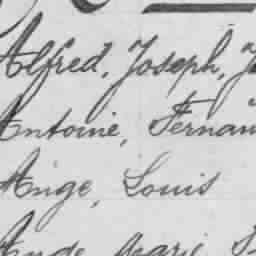 Alfred, Joseph, J
Antoine, Fernan
Ange, Louis
Ange Marie